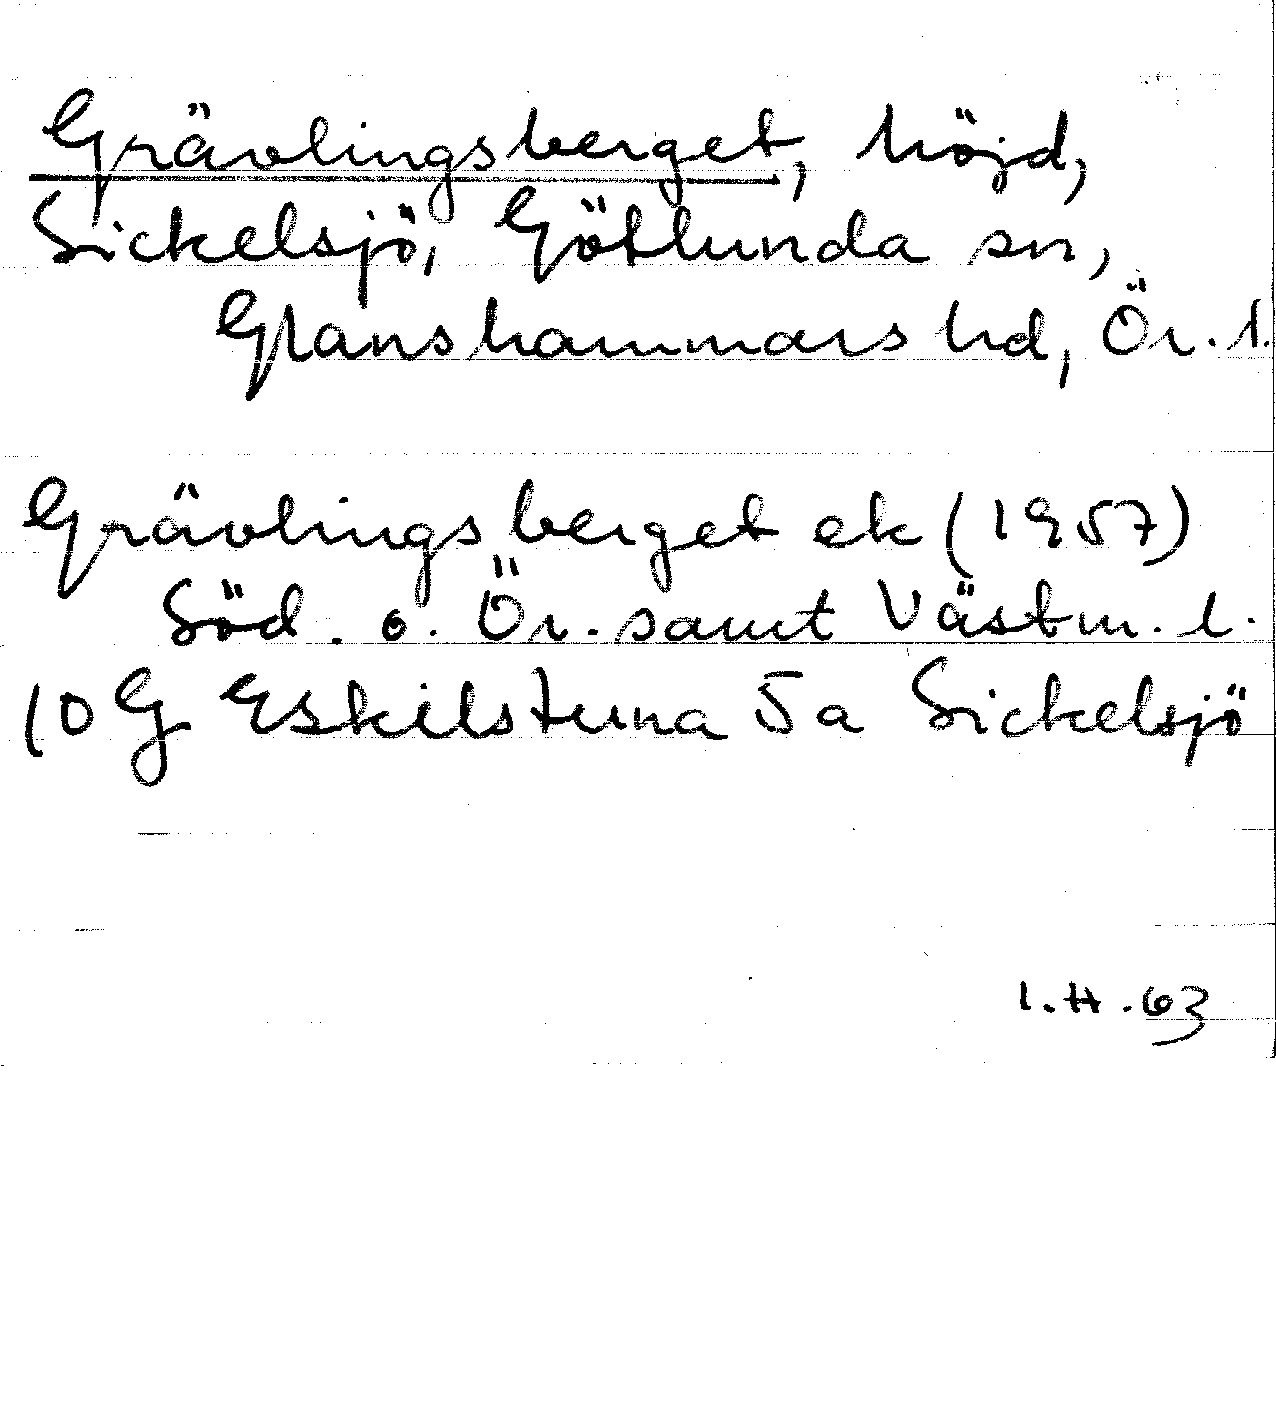 Grävlingsberget, höjd,
Sickelsjö, Götlunda sn,
Glanshammars hd, Ör. l.
Grävlingsberget ek (1957)
Söd. o. Ör. samt Västm. l.
10 G Eskilstuna 5a Sickelsjö
I.H.63